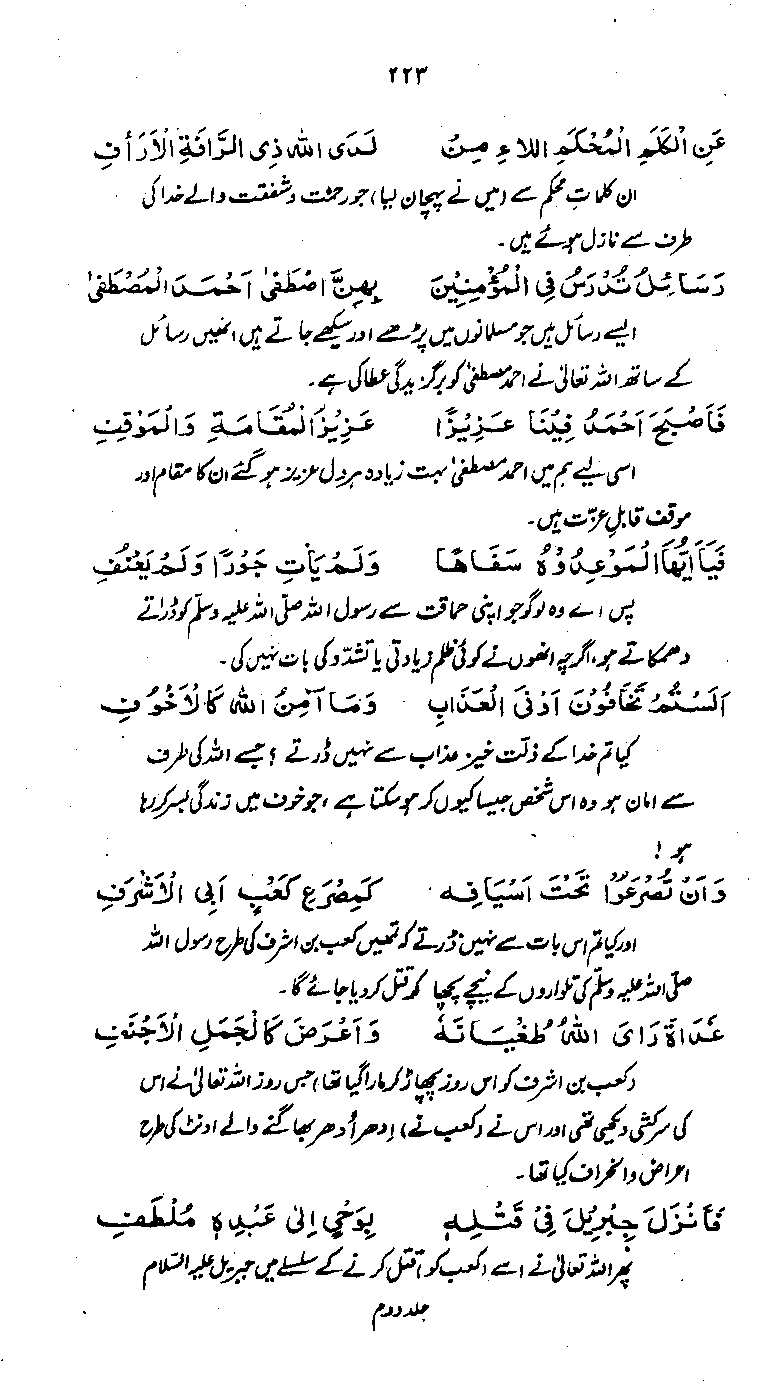 ۲۲۳
عَنِ الْكَلَمِ الْمُحْكَمِ اللاءِ مِنْ لَدَى اللهِ ذِى الرَّافَةِ الْاَرْأَفِ
ان کلماتِ محکم سے (میں نے پہچان لیا) جو رحمت و شفقت والے خدا کی
طرف سے نازل ہوئے ہیں۔
رَسَائِلُ تُدْرَسُ فِى الْمُؤْمِنِيْنَ بِهِنَّ اصْطَفىٰ اَحْمَدَ الْمُصْطَفىٰ
ایسے رسائل ہیں جو مسلمانوں میں پڑھے اور سیکھے جاتے ہیں انہیں رسائل
کے ساتھ اللہ تعالیٰ نے احمد مصطفیٰ کو برگزیدگی عطا کی ہے۔
فَاَصْبَحَ اَحْمَدُ فِيْنَا عَزِيْزًا عَزِيْزَ الْمُقَامَةِ وَالْمَوْقِفِ
اسی لیے ہم میں احمد مصطفیٰ بہت زیادہ ہر دل عزیز ہو گئے ان کا مقام اور
موقف قابلِ عزّت ہیں۔
فَيَا اَيُّهَا الْمَوْعِدُوْهُ سَفَاهًا وَلَمْ يَأْتِ جَوْرًا وَلَمْ يَعْنُفِ
پس اے وہ لوگو جو اپنی حماقت سے رسول اللہ صلّی اللہ علیہ وسلّم کو ڈراتے
دھمکاتے ہو، اگرچہ انھوں نے کوئی ظلم زیادتی یا تشدّد کی بات نہیں کی۔
اَلَسْتُمْ تَخَافُوْنَ اَدْنَى الْعَذَابِ وَمَا آمِنُ اللهِ كَالْاَخْوَفِ
کیا تم خدا کے ذلّت خیز عذاب سے نہیں ڈرتے ؟ جسے اللہ کی طرف
سے امان ہو وہ اس شخص جیسا کیوں کر ہو سکتا ہے ، جو خوف میں زندگی بسر کر رہا
ہو !
وَاَنْ تُصْرَعُوْا تَحْتَ اَسْيَافِهٖ كَمِصْرَعِ كَعْبٍ اَبِى الْاَشْرَفِ
اور کیا تم اس بات سے نہیں ڈرتے کہ تمھیں کعب بن اشرف کی طرح رسول اللہ
صلّی اللہ علیہ وسلّم کی تلواروں کے نیچے پچھاڑ کر قتل کر دیا جائے گا۔
غَدَاةَ رَاَى اللهُ طُغْيَانَهٗ وَاَعْرَضَ كَالْجَمَلِ الْاَجْنَفِ
(کعب بن اشرف کو اس روز پچھاڑ کر مارا گیا تھا) جس روز اللہ تعالیٰ نے اس
کی سرکشی دیکھی تھی اور اس نے (کعب نے) اِدھر اُدھر بھاگنے والے اونٹ کی طرح
اعراض و انحراف کیا تھا۔
فَاَنْزَلَ جِبْرِيْلَ فِىْ قَتْلِهٖ بِوَحْيٍ اِلىٰ عَبْدِهٖ مُلْطَفِ
پھر اللہ تعالیٰ نے اسے (کعب کو) قتل کرنے کے سلسلے میں جبریل علیہ السّلام
جلد دوم